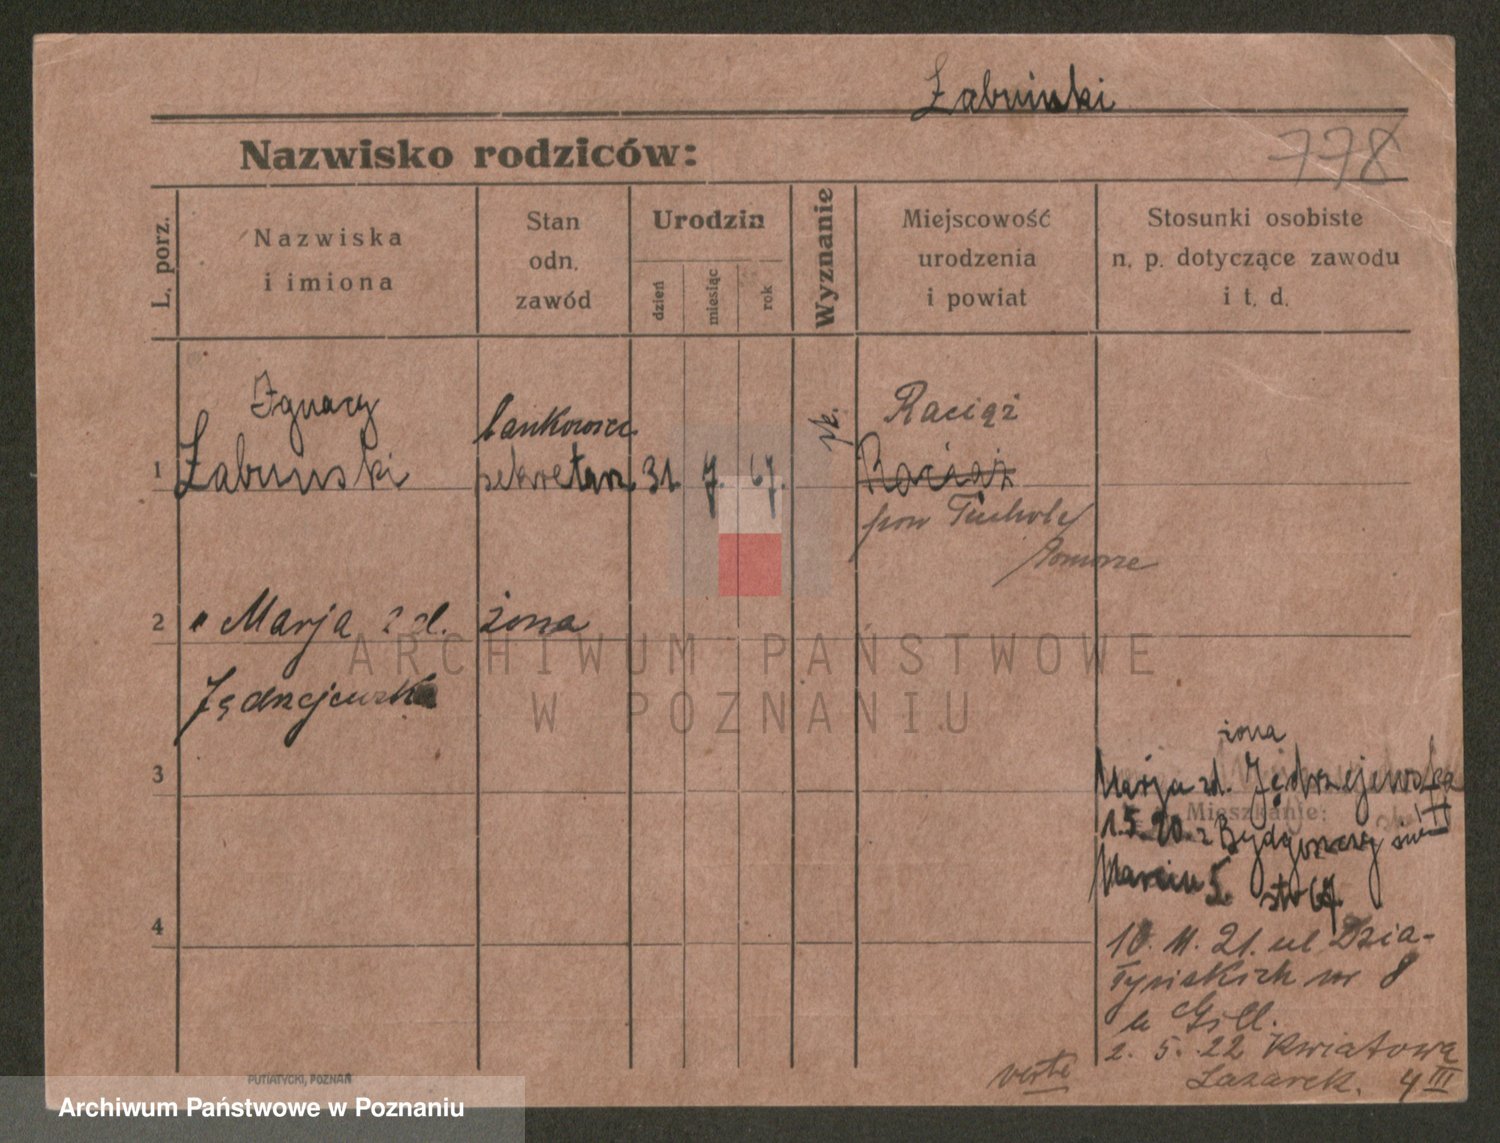 Żabiński
Nazwisko rodziców:
778
L. porz.
Nazwiska
i imiona
Stan
odn.
zawód
Urodzin
dzień
miesiąc
rok
Wyznanie
Miejscowość
urodzenia
i powiat
Stosunki osobiste
n. p. dotyczące zawodu
i t. d.
Ignacy
bankowy
rk.
Raciąż
1
sekretarz
31.
7.
67.
Raciąż
pow Tuchola
Pomorze
2
" Marja zd.
żona
ARCHIWUM PAŃSTWOWE
W POZNANIU
Jędrzejewska
żona
3
Marja zd. Jędrzejewska
Mieszkanie:
1.5.20. z Bydgoszczy
Marcin 5.
4
10. 11. 21. ul Dzia-
łyńskich nr 8
u Gill.
2. 5. 22 Kwiatowa
verte
Łazarek. 4 III
PUTIATYCKI, POZNAŃ
Archiwum Państwowe w Poznaniu